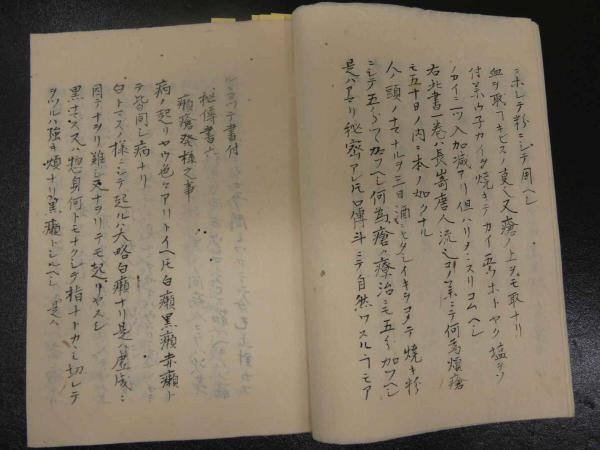 ニホシテ粉ニシテ用ヘシ
血ヲ取フキビスノ真ン又瘡ノ上ヲモ取ナリ
付薬ウ子カイタ焼キテカイ五ツホトヤク塩テン
カイ二ツ入加減アリ但ハリタニスリコムヘシ
右此書一巻ハ長嵜唐人流之ヨノ薬ニテ何為煩瘡
モ五十日ノ内ニ本ノ如クナル
人ノ頭ノナマナルヲ三日酒ニヒタシイキヲコメテ焼キ粉
ニシテ五分ヅヽ加フヘシ何為瘡ノ療治ニモ五分加フヘシ
是ハアマリ秘密アレ𪜈口傳斗ニテ自然ワスルヽ事モア
ルニヨツテ書付
秘傳書六
癩瘡発様之事
病ノ起リヤウ色々アリトイヘ𪜈白癩黒癩赤癩ト
テ皆同シ病ナリ
白トマスノ様ニシテ起ル大略白癩ナリ是ハ虚成ニ
因テナヲリ難シ又ナヲリテモ起リヤスシ
黒ナマスヌハ惣身何トモナクシテ指ナトカニ切レテ
ヲツルハ強キ煩ナリ黒癩トシルヘシ是ハ